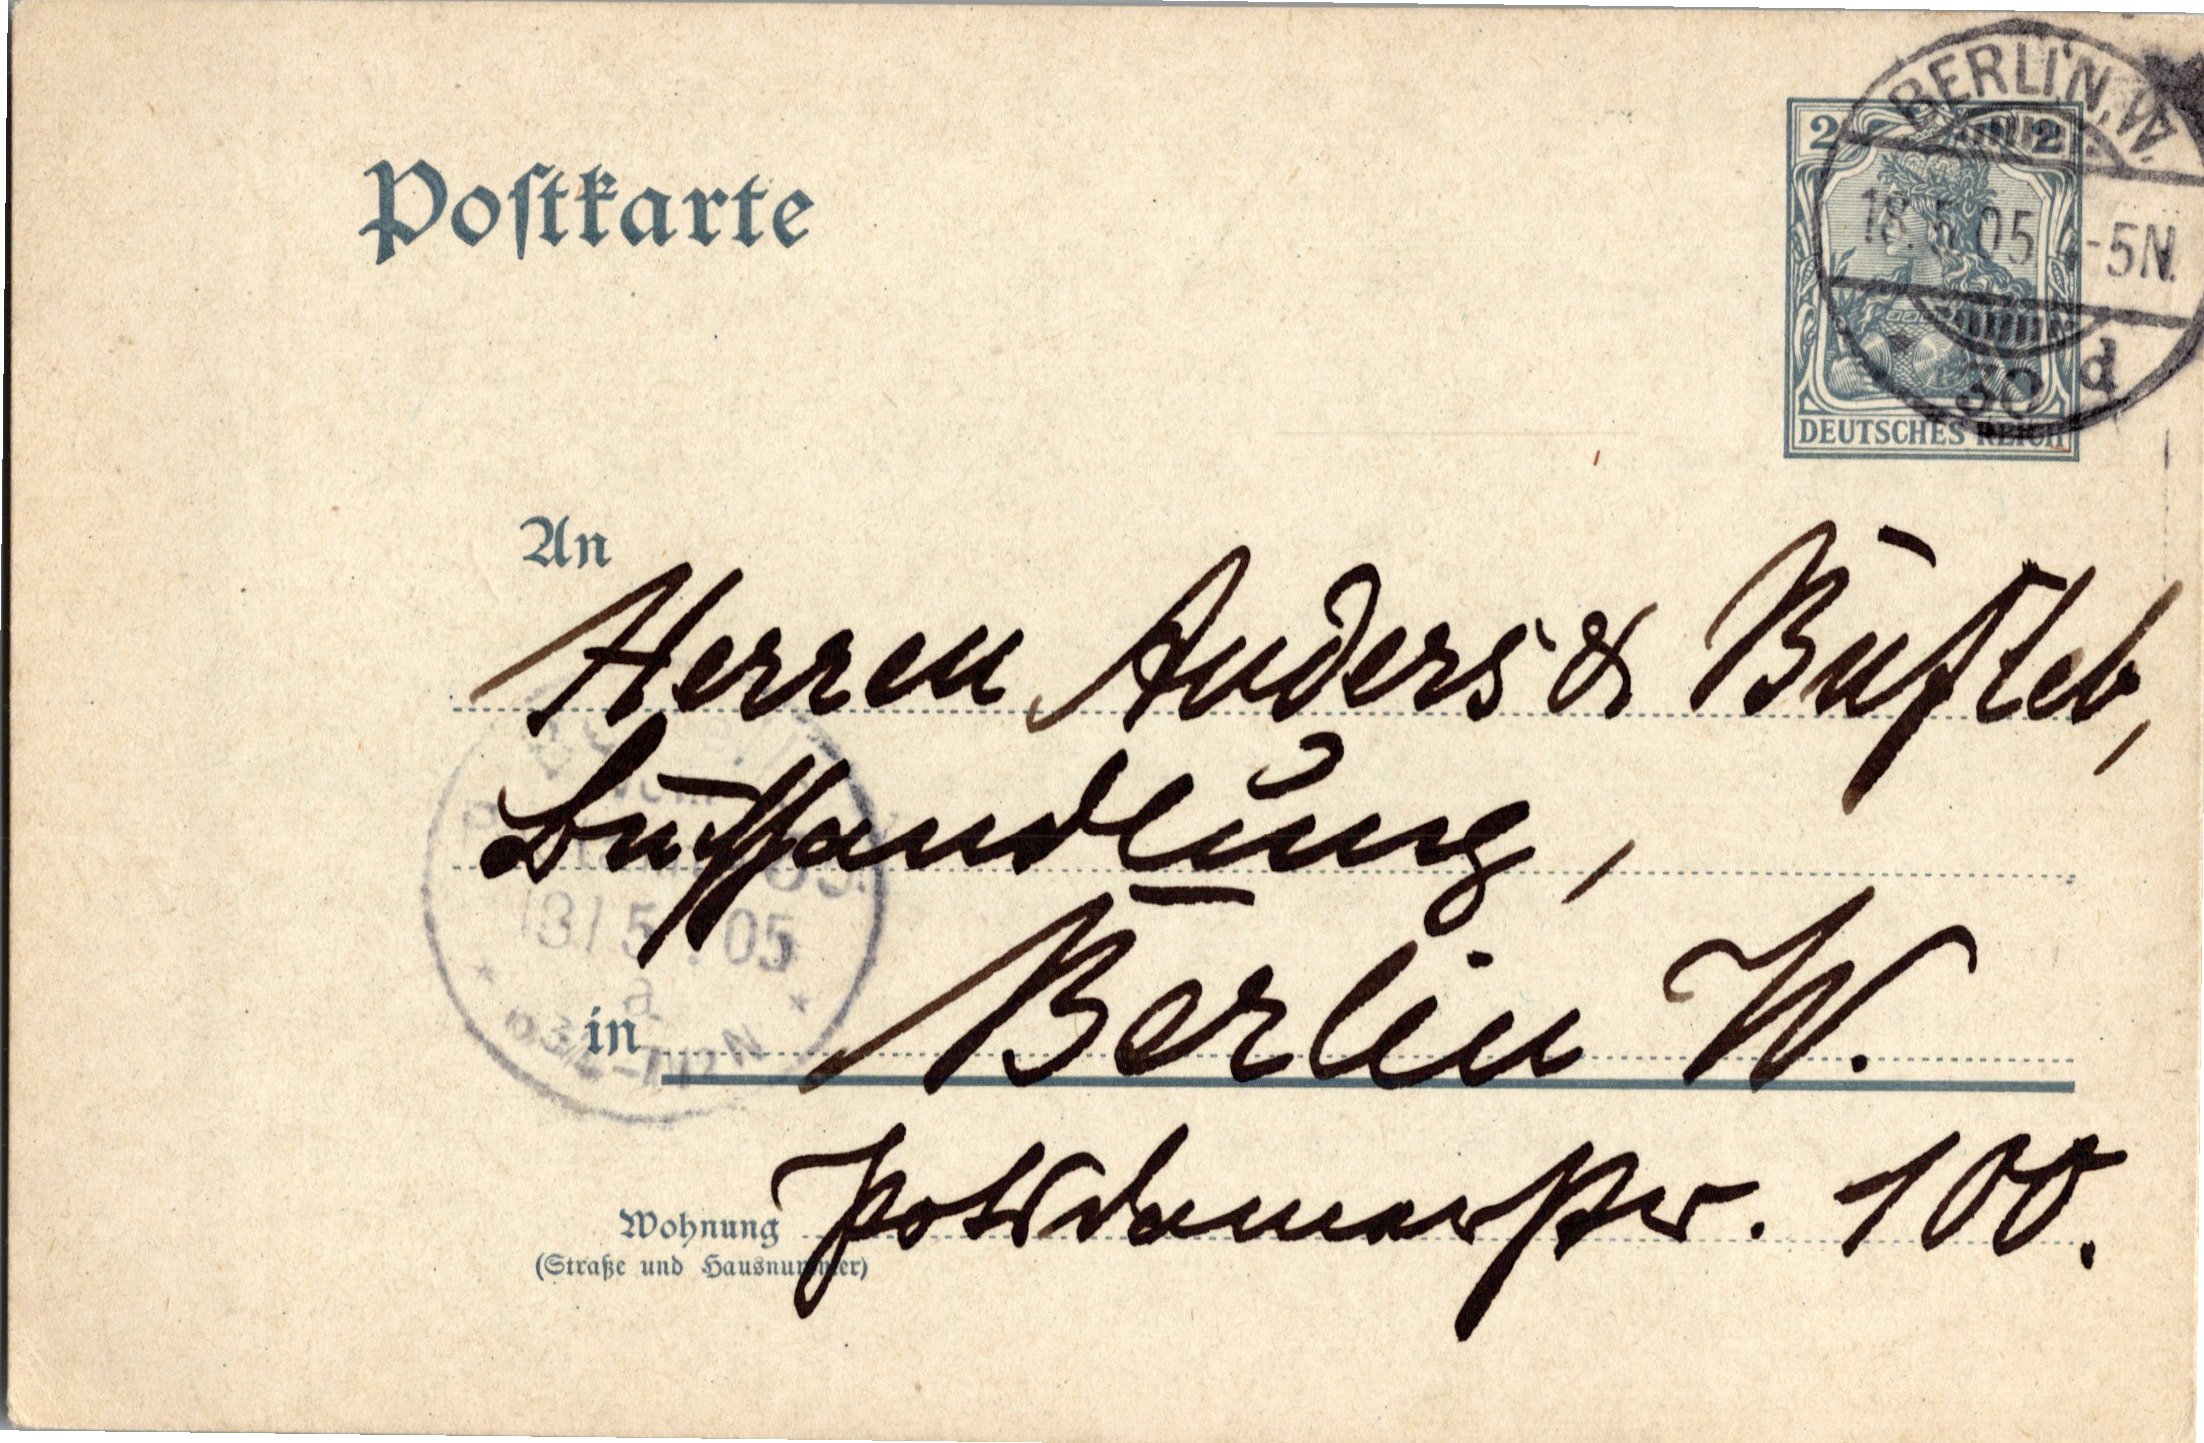 Postkarte
BERLIN, W.
2 2
18.5.05 -5N.
30 d
DEUTSCHES REICH
An
Herren Anders & Bufleb,
Buchhandlung,
5 05
a
in Berlin W.
Wohnung Potsdamerstr. 100.
(Straße und Hausnummer)